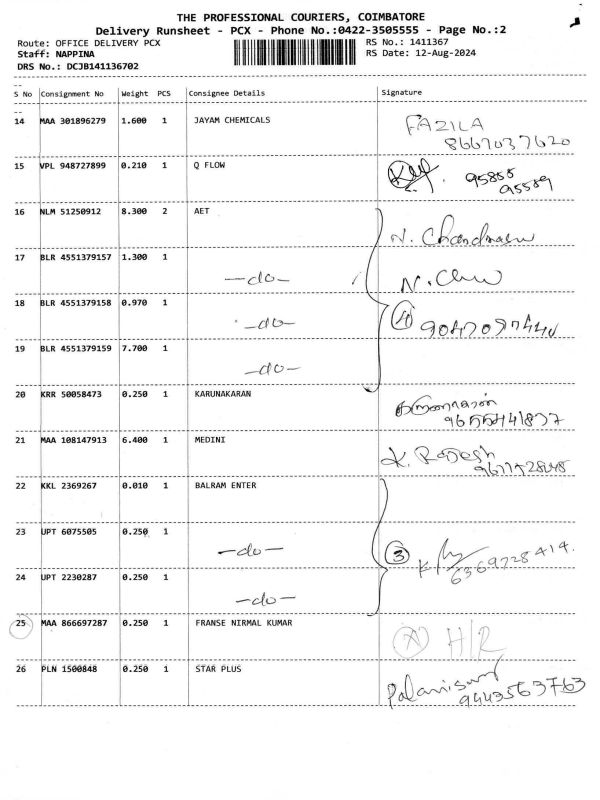 THE PROFESSIONAL COURIERS, COIMBATORE
Delivery Runsheet - PCX - Phone No.:0422-3505555 - Page No.:2
Route: OFFICE DELIVERY PCX RS No.: 1411367
Staff: NAPPINA RS Date: 12-Aug-2024
DRS No.: DCJB141136702
S No Consignment No Weight PCS Consignee Details Signature
14 MAA 301896279 1.600 1 JAYAM CHEMICALS FAZILA
8667037620
15 VPL 948727899 0.210 1 Q FLOW 95855
95589
16 NLM 51250912 8.300 2 AET N. Chandrasew
17 BLR 4551379157 1.300 1 -do-
18 BLR 4551379158 0.970 1 -do- 4 9047097440
19 BLR 4551379159 7.700 1 -do-
20 KRR 50058473 0.250 1 KARUNAKARAN கருணாகரன்
9655441897
21 MAA 108147913 6.400 1 MEDINI K. Rajesh
22 KKL 2369267 0.010 1 BALRAM ENTER
23 UPT 6075505 0.250 1 -do- 3
6369728414.
24 UPT 2230287 0.250 1 -do-
25 MAA 866697287 0.250 1 FRANSE NIRMAL KUMAR H/R
26 PLN 1500848 0.250 1 STAR PLUS Palanisamy
9443563763